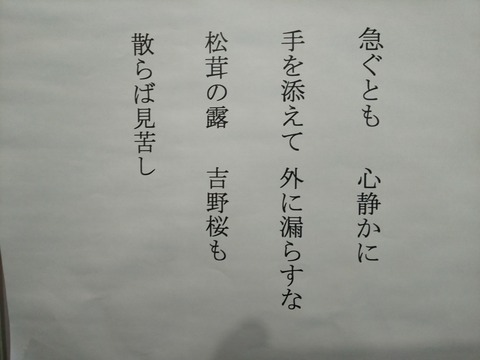 急ぐとも 心静かに
手を添えて 外に漏らすな
松茸の露 吉野桜も
散らば見苦し